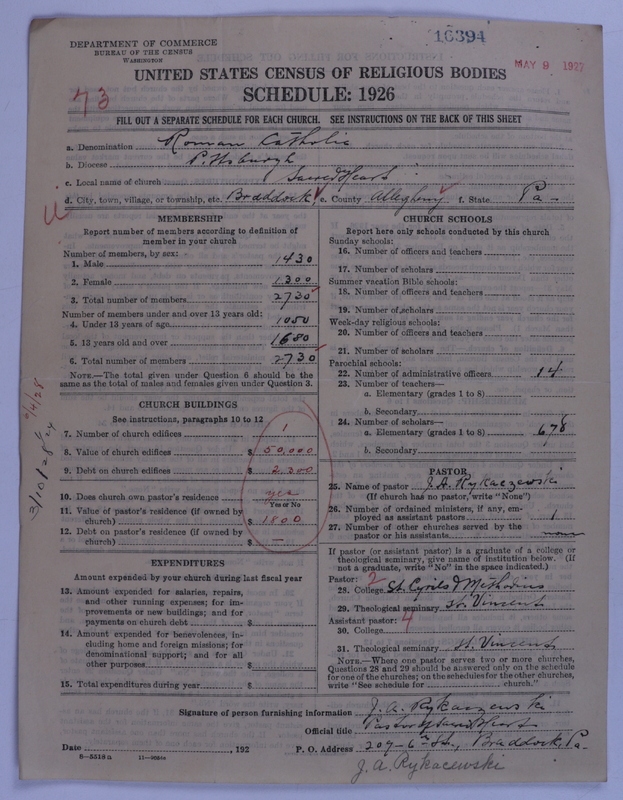 DEPARTMENT OF COMMERCE
BUREAU OF THE CENSUS
WASHINGTON
16394
MAY 9 1927
UNITED STATES CENSUS OF RELIGIOUS BODIES
SCHEDULE: 1926
73
FILL OUT A SEPARATE SCHEDULE FOR EACH CHURCH. SEE INSTRUCTIONS ON THE BACK OF THIS SHEET
a. Denomination Roman Catholic
b. Diocese Pittsburgh
c. Local name of church Sacred Heart
d. City, town, village, or township, etc. Braddock e. County Allegheny f. State Pa-
MEMBERSHIP
Report number of members according to definition of
member in your church
Number of members, by sex:
1. Male 1430
2. Female 1300
3. Total number of members 2730
Number of members under and over 13 years old:
4. Under 13 years of age 1050
5. 13 years old and over 1680
6. Total number of members 2730
NOTE.—The total given under Question 6 should be the
same as the total of males and females given under Question 3.
CHURCH BUILDINGS
See instructions, paragraphs 10 to 12
7. Number of church edifices 1
8. Value of church edifices $ 50,000
9. Debt on church edifices $ 2,300
10. Does church own pastor's residence yes
Yes or No
11. Value of pastor's residence (if owned by
church) $ 1800
12. Debt on pastor's residence (if owned by
church) $ —
EXPENDITURES
Amount expended by your church during last fiscal year
13. Amount expended for salaries, repairs,
and other running expenses; for im-
provements or new buildings; and for
payments on church debt $
14. Amount expended for benevolences, in-
cluding home and foreign missions; for
denominational support; and for all
other purposes $
15. Total expenditures during year $
CHURCH SCHOOLS
Report here only schools conducted by this church
Sunday schools:
16. Number of officers and teachers
17. Number of scholars
Summer vacation Bible schools:
18. Number of officers and teachers
19. Number of scholars
Week-day religious schools:
20. Number of officers and teachers
21. Number of scholars
Parochial schools:
22. Number of administrative officers 14
23. Number of teachers—
a. Elementary (grades 1 to 8)
b. Secondary
24. Number of scholars—
a. Elementary (grades 1 to 8) 678
b. Secondary
PASTOR
25. Name of pastor J.A. Rykaczewski
(If church has no pastor, write "None")
26. Number of ordained ministers, if any, em-
ployed as assistant pastors 1
27. Number of other churches served by the
pastor or his assistants none
If pastor (or assistant pastor) is a graduate of a college or
theological seminary, give name of institution below. (If
not a graduate, write "No" in the space indicated.)
Pastor: 2
28. College St. Cyrils & Methodius
29. Theological seminary St. Vincents
Assistant pastor: 4
30. College
31. Theological seminary St. Vincents
NOTE.—Where one pastor serves two or more churches,
Questions 28 and 29 should be answered only on the schedule
for one of the churches; on the schedules for the other churches,
write "See schedule for church."
Signature of person furnishing information J. A. Rykaczewski
Official title Pastor of Sacred Heart
Date , 192 P. O. Address 209-6th St., Braddock, Pa-
8—5518a
J. A. Rykaczewski